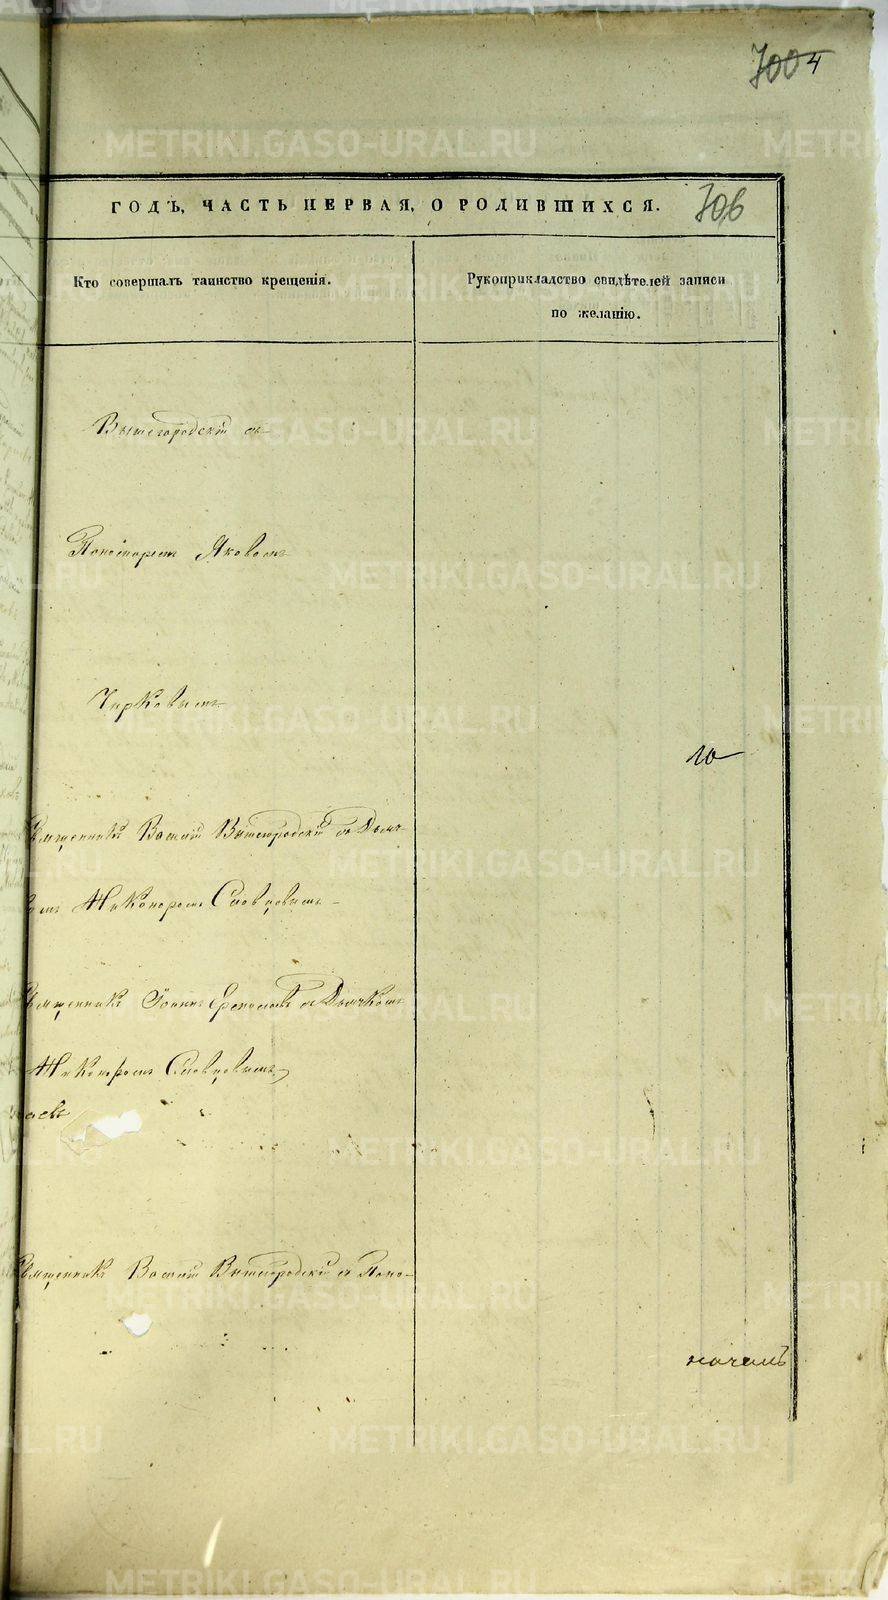 7004
ГОДЪ, ЧАСТЬ ПЕРВАЯ, О РОДИВШИХСЯ.
706
Кто совершалъ таинство крещенія.
Рукоприкладство свидѣтелей записи
по желанію.
Вышегородскій съ
Пономарем Яковомъ
Чирковымъ
10
Священникъ Василій Вышегородскій съ Дьяч-
комъ Никаноромъ Словцовымъ
Священникъ Іоаннъ съ Дьячкомъ
Никаноромъ Словцовымъ
Священникъ Василій Вышегородскій съ Поно-
METRIKI.GASO-URAL.RU